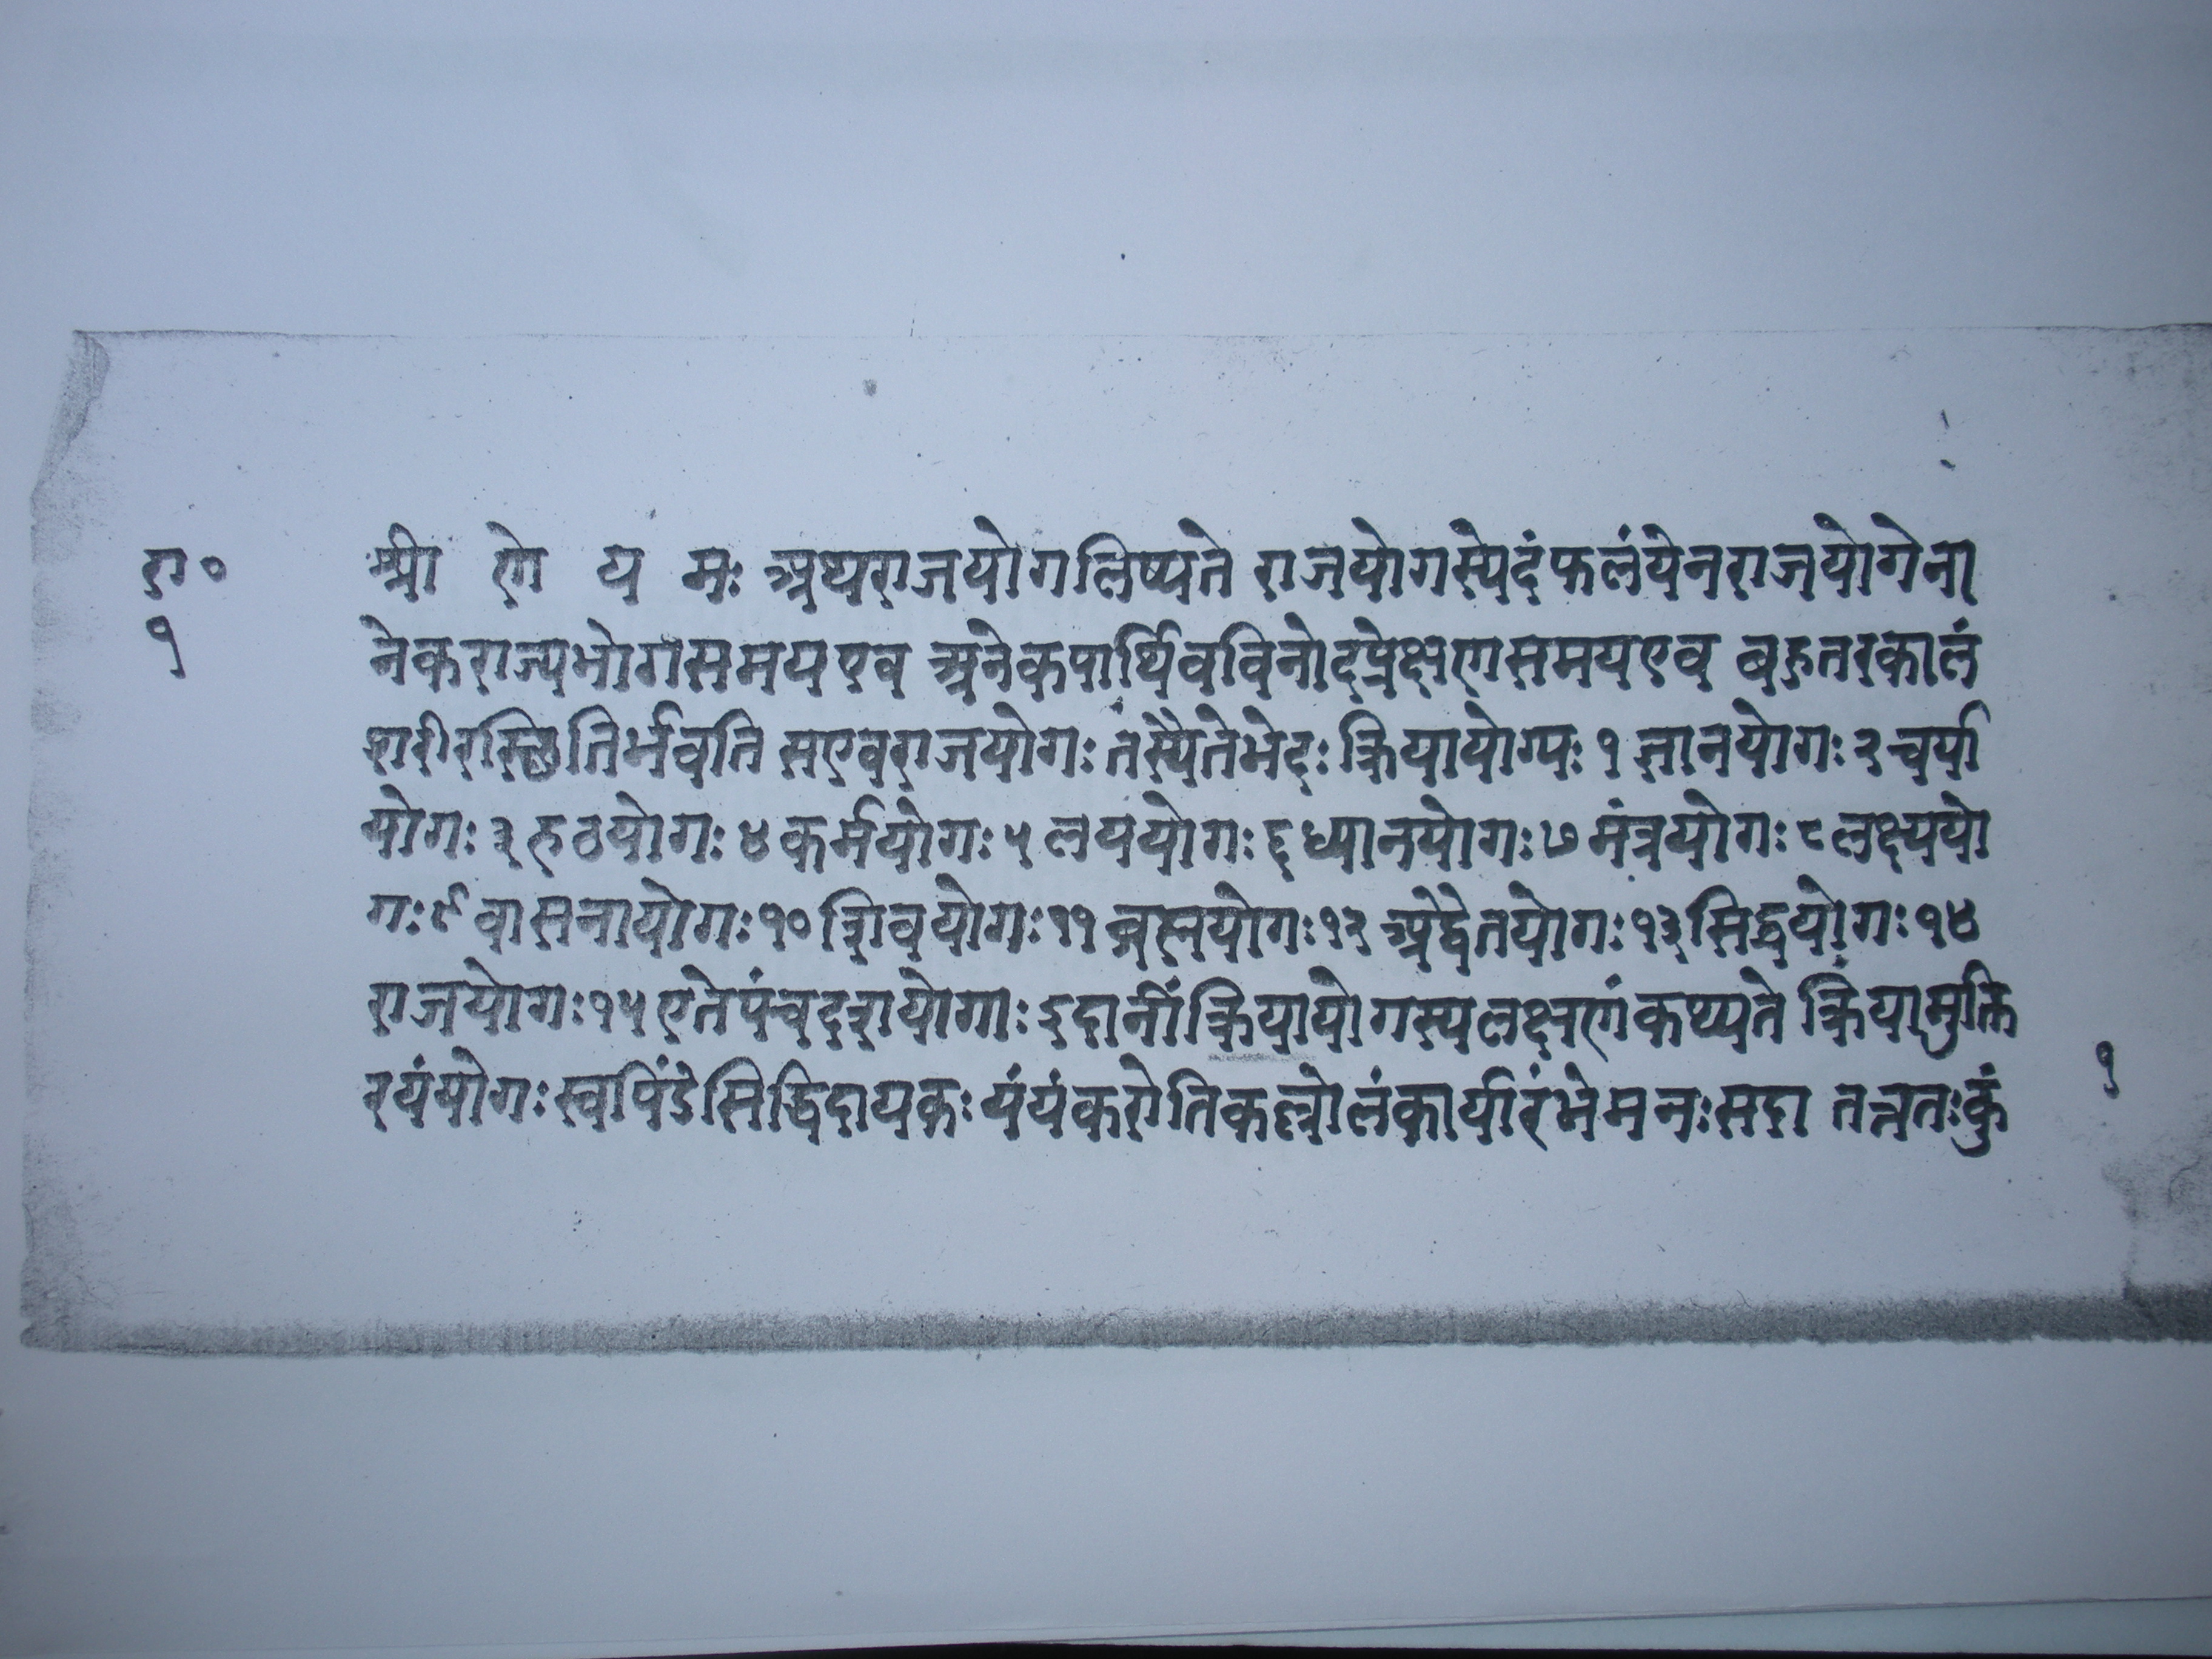 रा० श्री णे य मः अथराजयोगलिष्यते राजयोगस्येदंफलंयेनराजयोगेना
१ नेकराज्यभोगसमयएव अनेकपार्थिवविनोदप्रेक्षणसमयएव बहुतरकालं
शरीरस्छितिर्भवति सएवराजयोगः तस्यैतेभेदः क्रियायोग्यः १ ज्ञानयोगः २ चर्या
योगः ३ हठयोगः ४ कर्मयोगः ५ लययोगः ६ ध्यानयोगः ७ मंत्रयोगः ८ लक्ष्ययो
गः ९ वासनायोगः १० शिवयोगः ११ ब्रह्मयोगः १२ अद्वैतयोगः १३ सिद्धयोगः १४
राजयोगः १५ एतेपंचदशयोगाः इदानींक्रियायोगस्यलक्षणंकथ्यते क्रियामुक्ति
रयंयोगः स्वपिंडेसिद्धिदायकः यंयंकरोतिकल्लोलंकार्यारंभेमनःसदा तत्ततःकुं
१